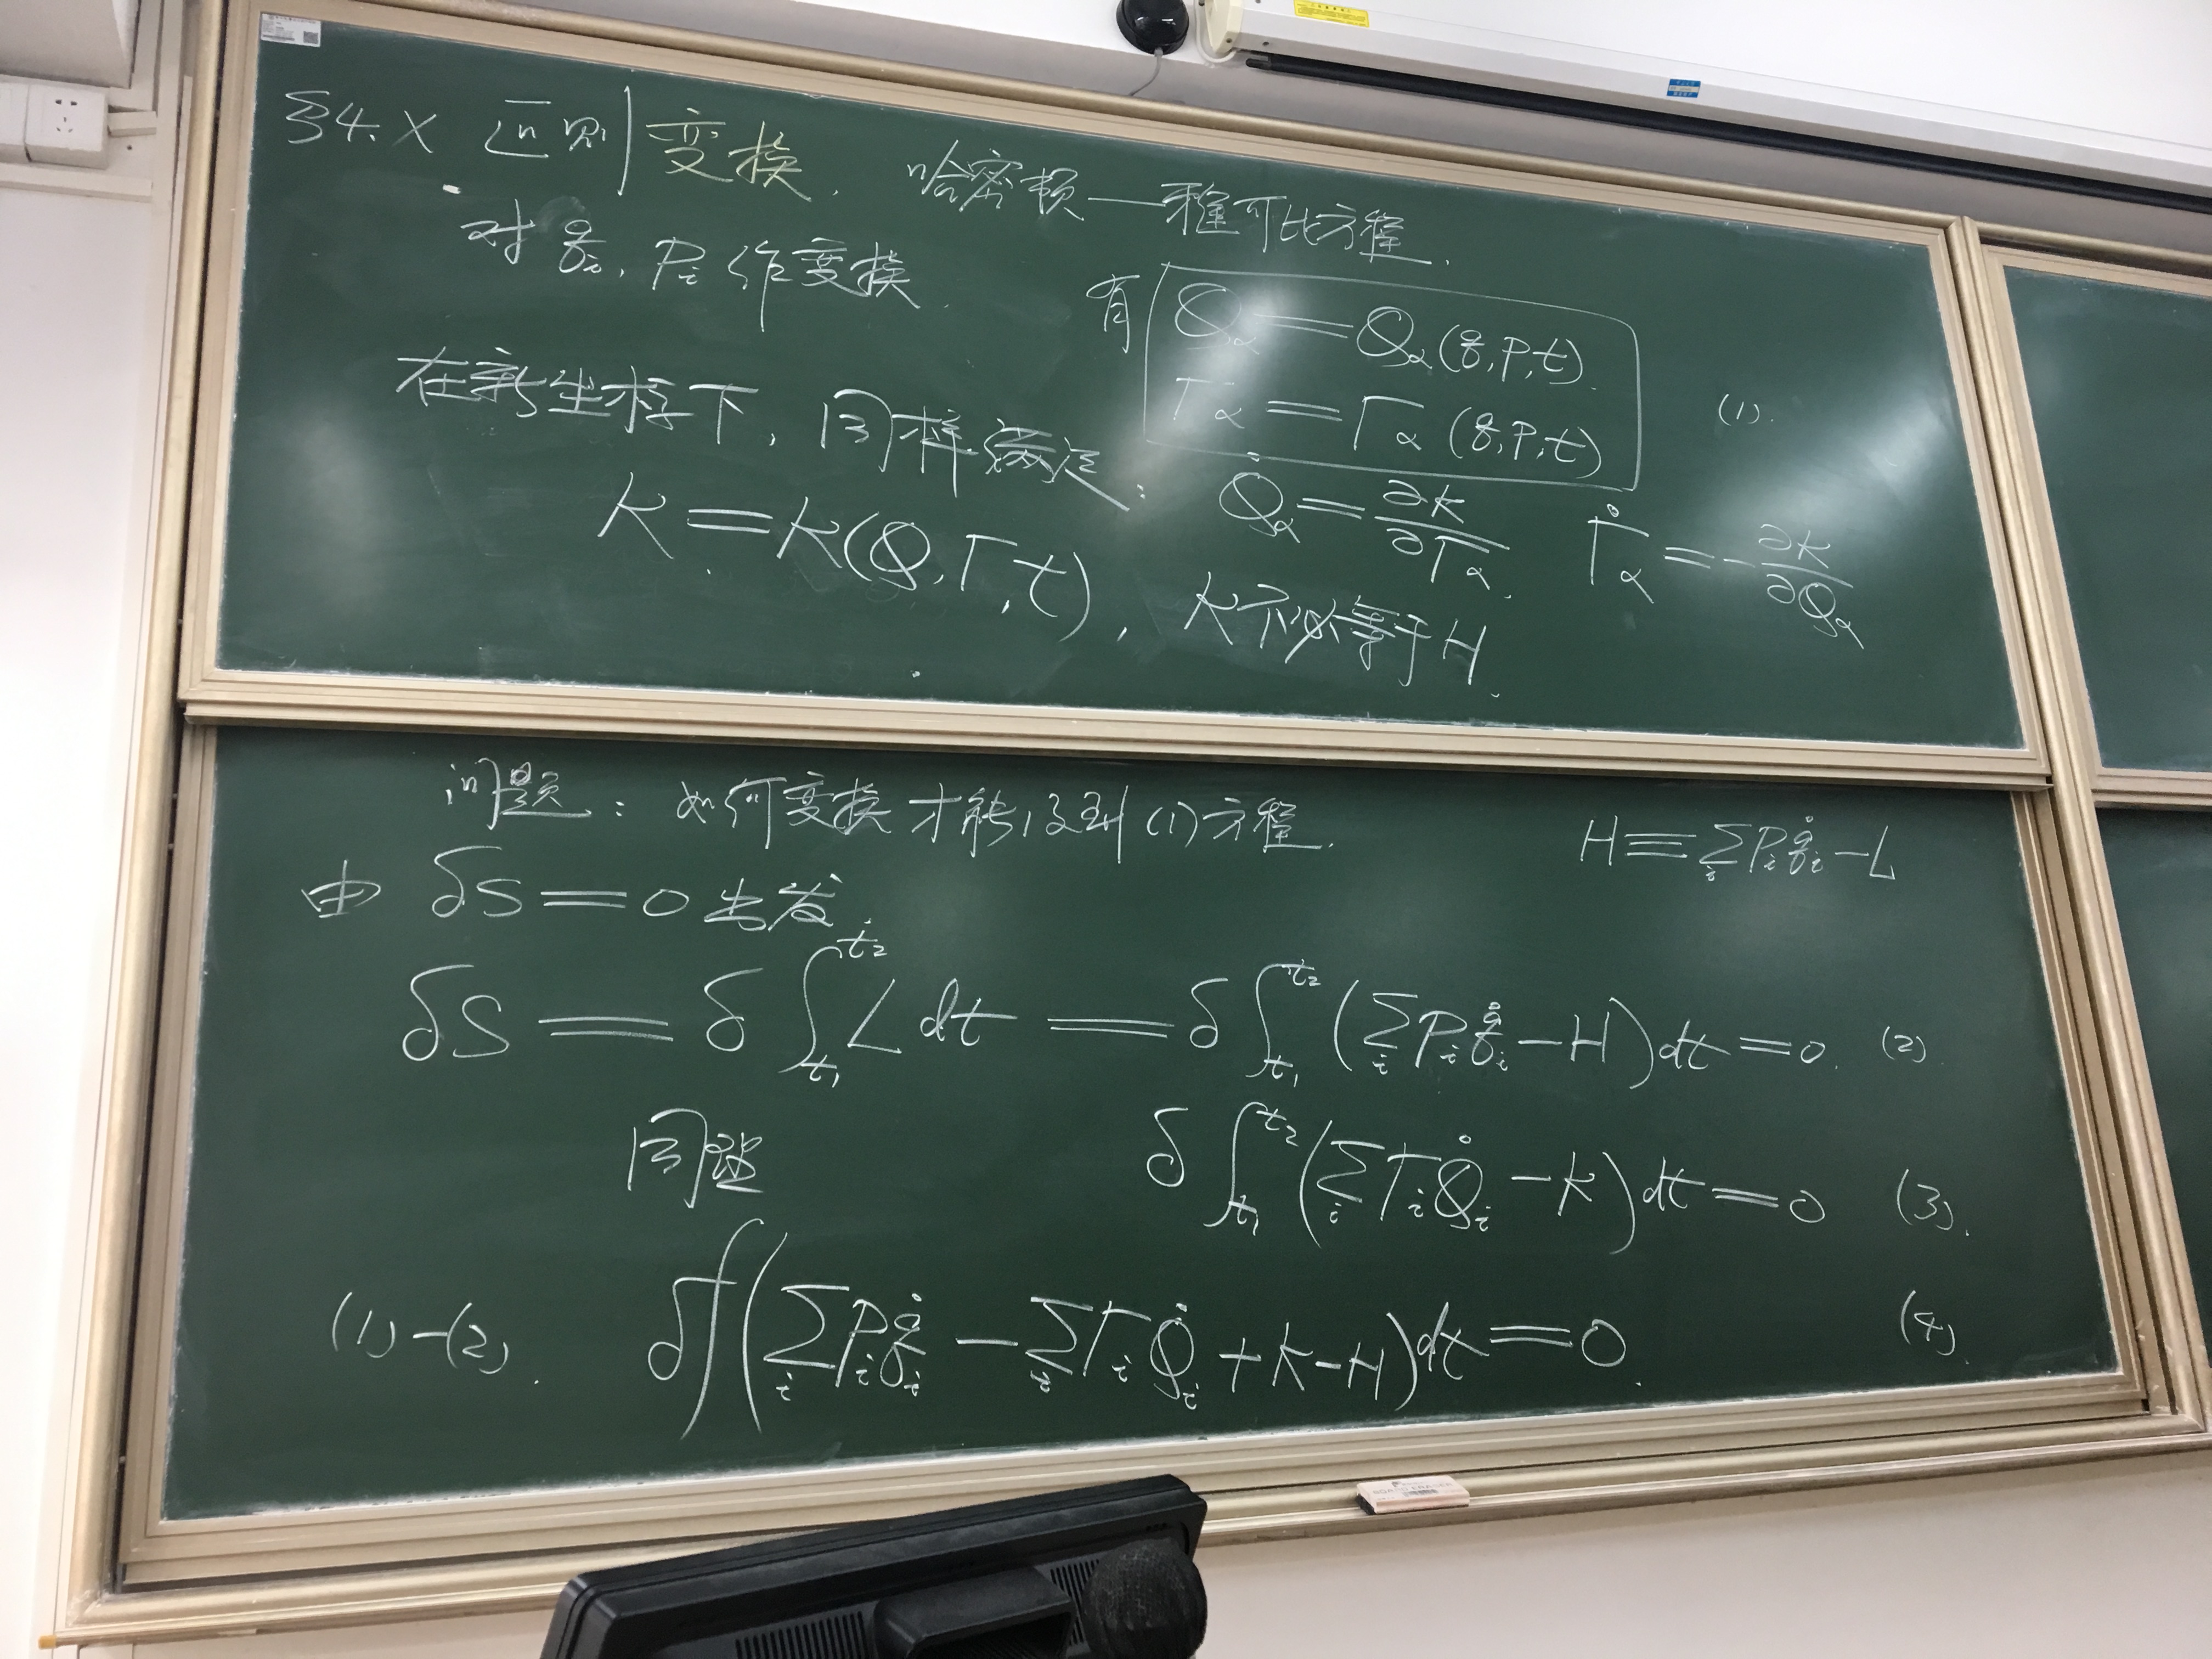 §4.X 正则变换. 哈密顿—雅可比方程.
对 qᵢ, Pᵢ 作变换.
有 Qα = Qα(q,P,t).
Γα = Γα(q,P,t) (1).
在新坐标下, 同样满足: Q̇α = ∂K/∂Γα. Γ̇α = -∂K/∂Qα
K = K(Q,Γ,t), K不必等于H.
问题: 如何变换才能得到(1)方程. H ≡ ∑ᵢ Pᵢq̇ᵢ - L
由 δS = 0 出发
δS = δ∫_{t₁}^{t₂} L dt = δ∫_{t₁}^{t₂} (∑ᵢ Pᵢq̇ᵢ - H) dt = 0. (2)
同理 δ∫_{t₁}^{t₂} (∑ᵢ ΓᵢQ̇ᵢ - K) dt = 0 (3).
(1)-(2). δ∫(∑ᵢ Pᵢq̇ᵢ - ∑ᵢ ΓᵢQ̇ᵢ + K - H) dt = 0. (4).